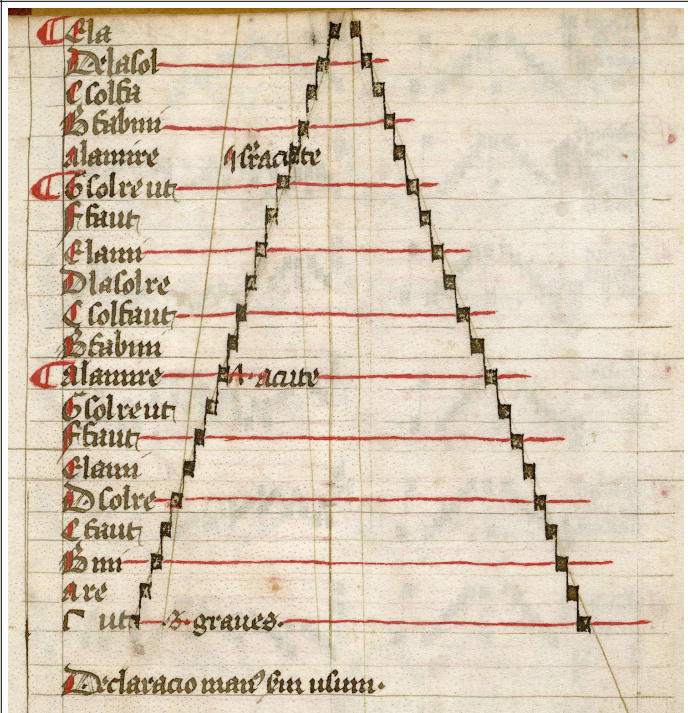 Ela
Delasol
Csolfa
Bfabmi
Alamire
Gsolreut
Ffaut
Elami
Dlasolre
Csolfaut
Bfabmi
Alamire acute
Gsolreut
Ffaut
Elami
Dsolre
Cfaut
Bmi
Are
Γ ut graues.
Declaracio usum.